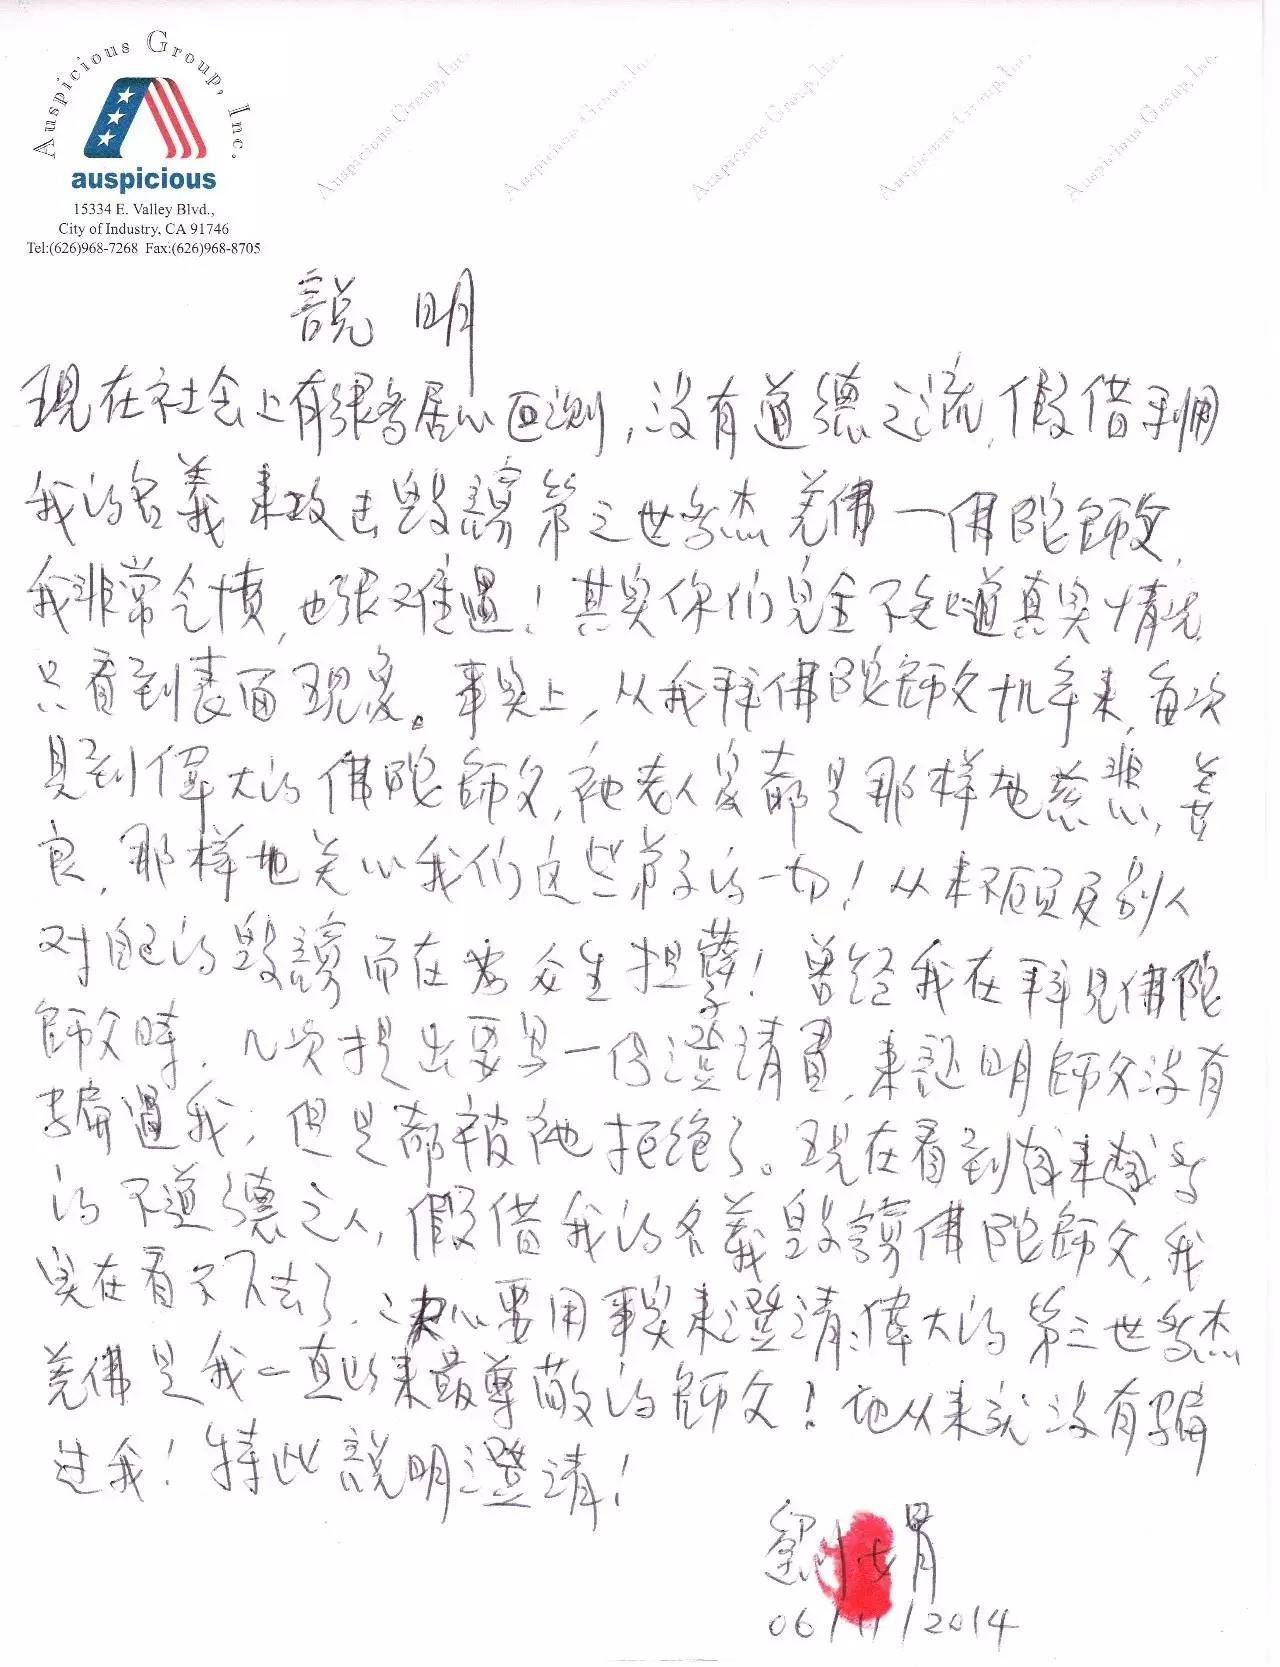 Auspicious Group, Inc.
auspicious
15334 E. Valley Blvd.,
City of Industry, CA 91746
Tel:(626)968-7268 Fax:(626)968-8705
Auspicious Group, Inc. Auspicious Group, Inc. Auspicious Group, Inc. Auspicious Group, Inc. Auspicious Group, Inc.
說明
現在社会上有很多居心叵测,没有道德之流,假借利用
我的名義来攻击毁謗第三世多杰羌佛一佛陀師父,
我非常气憤,也很难過!其実你们完全不知道真实情况,
只看到表面現象。事实上,从我拜佛陀師父十几年来,每次
見到偉大的佛陀師父,祂老人家都是那样地慈悲,善
良,那样地关心我们这些弟子的一切!从来不顾及别人
对自己的毁謗而在為众生担孽!曾经我在拜见佛陀
師父時,几次提出要写一份澄清書,来証明師父没有
騙過我,但是都被祂拒绝了。現在看到越来越多
的不道德之人,假借我的名義毁謗佛陀師父,我
实在看不下去了,决心要用事实来澄清:偉大的第三世多杰
羌佛是我一直以来最尊敬的師父!他从来就没有騙
过我!特此說明澄清!
劉娟
06/11/2014